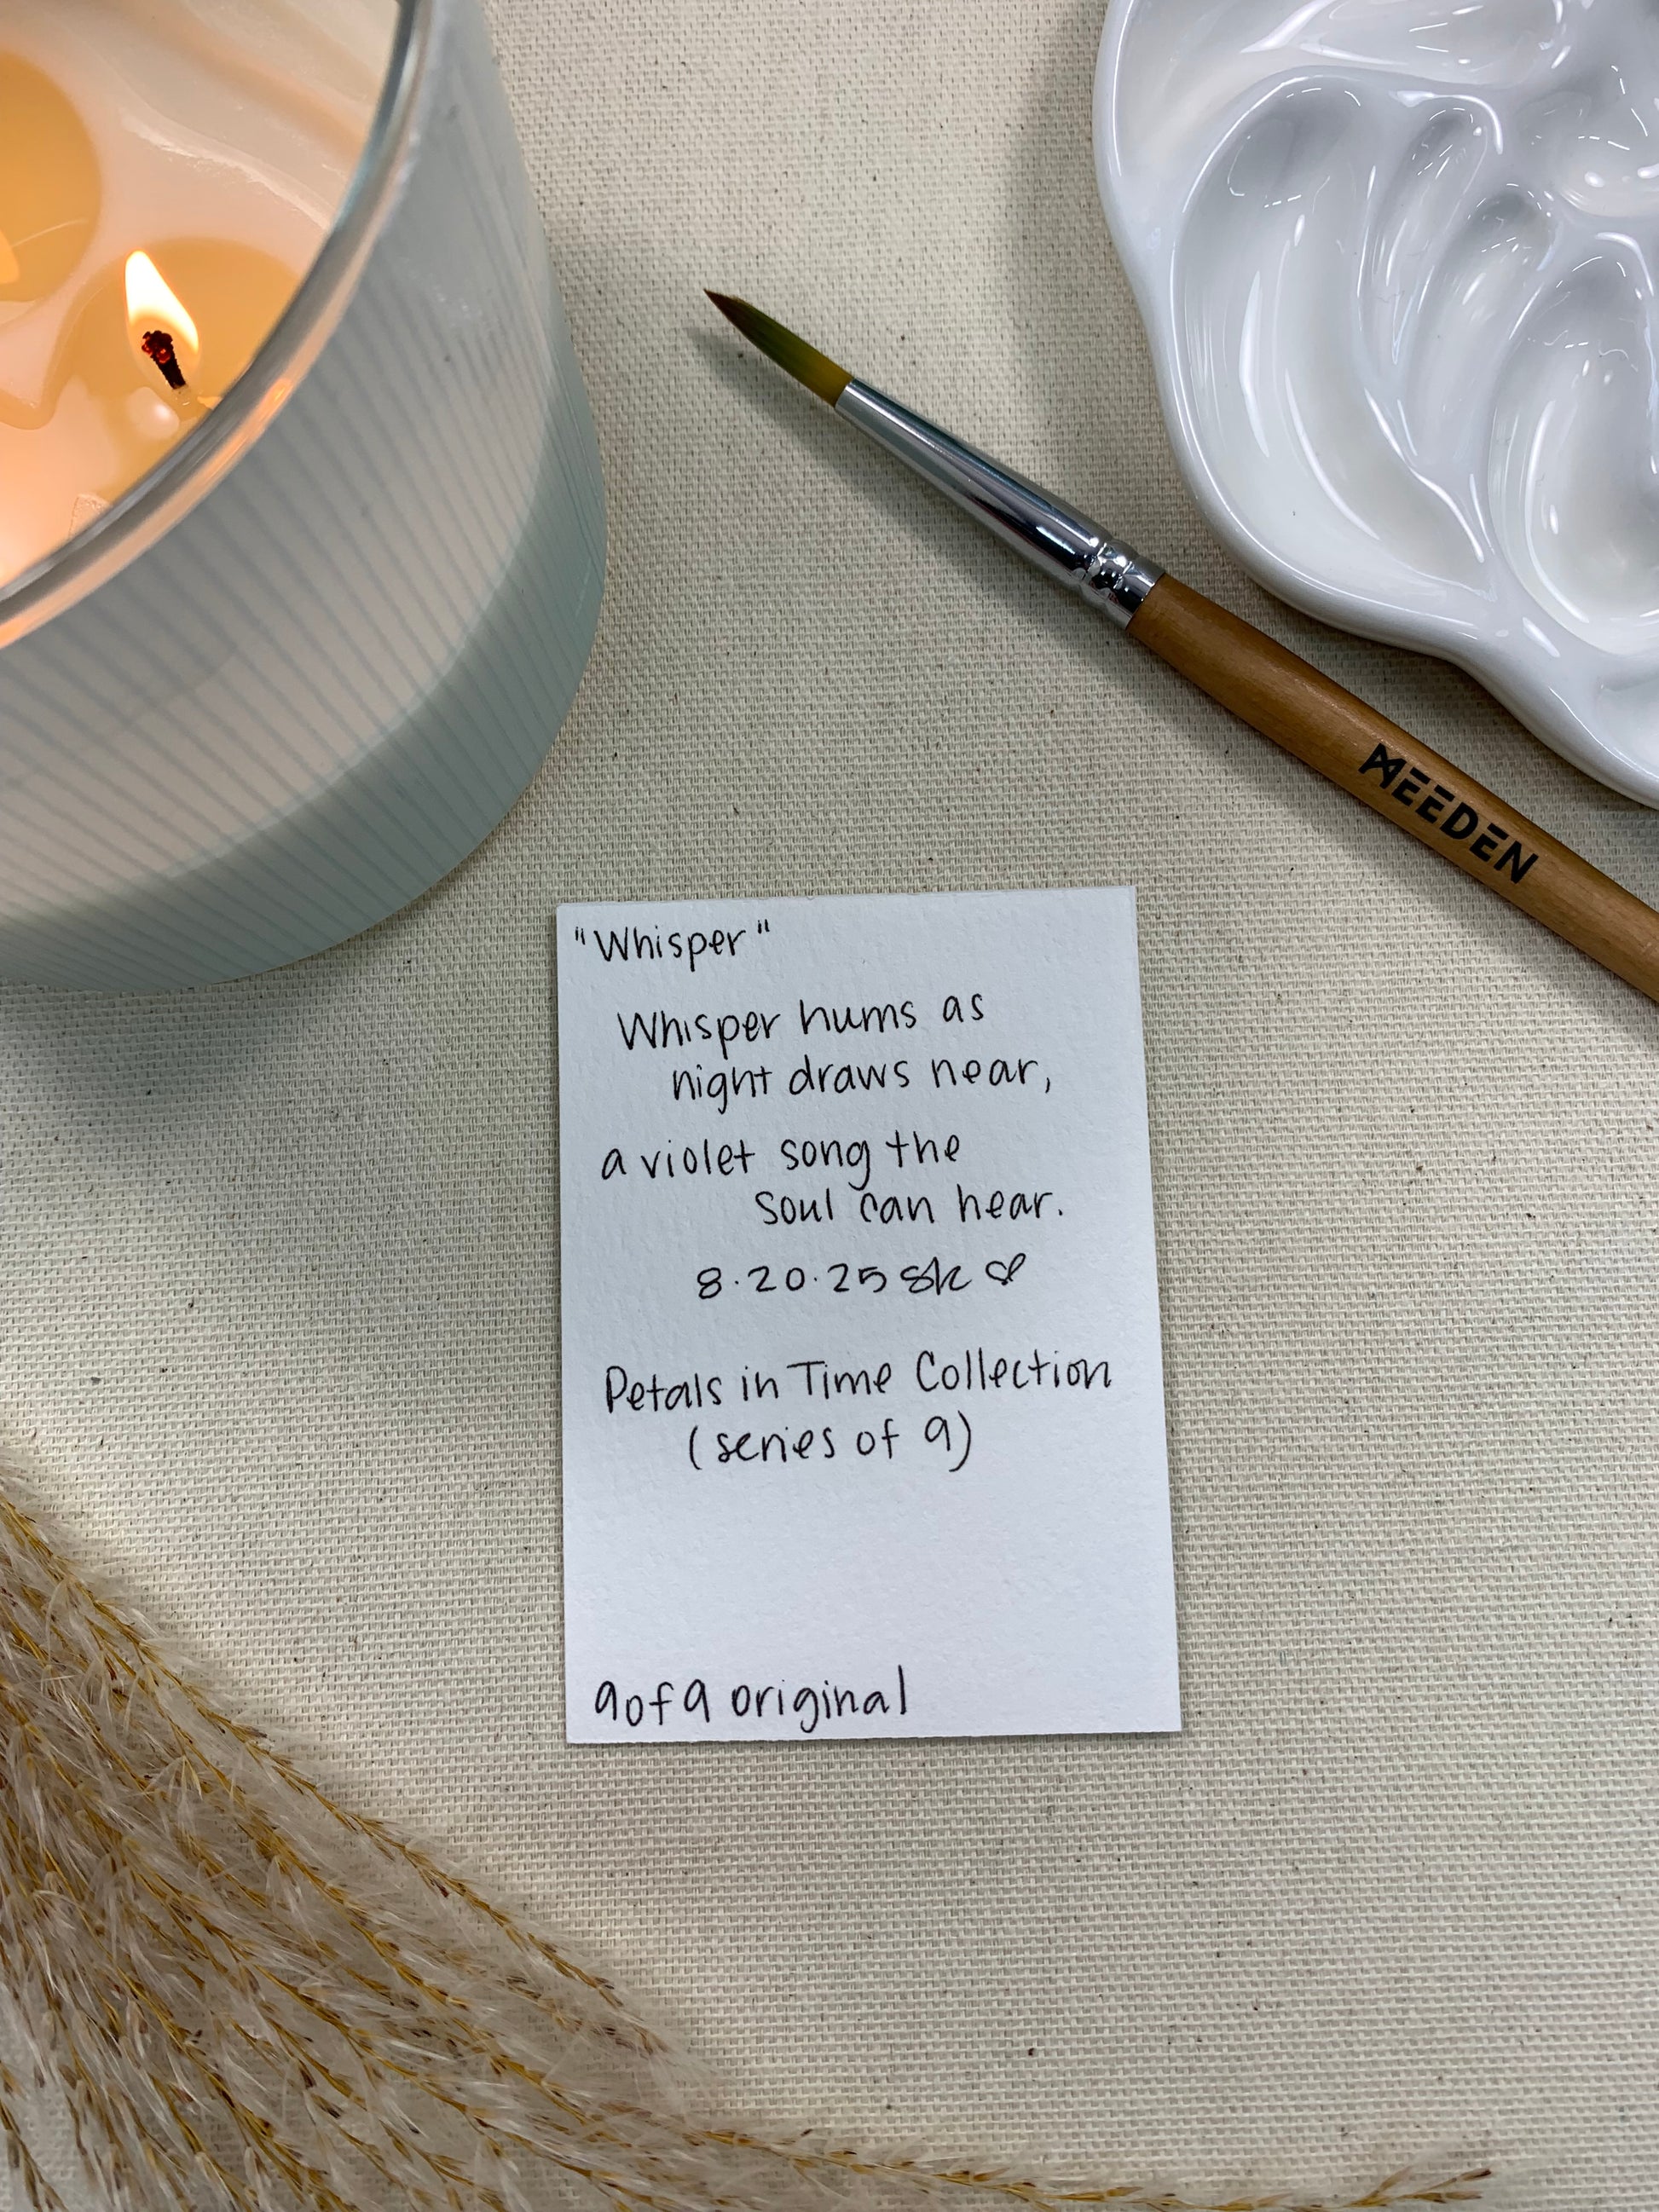 MEEDEN
"Whisper"
Whisper hums as
night draws near,
a violet song the
soul can hear.
8.20.25 sk ♡
Petals in Time Collection
(series of 9)
9 of 9 original